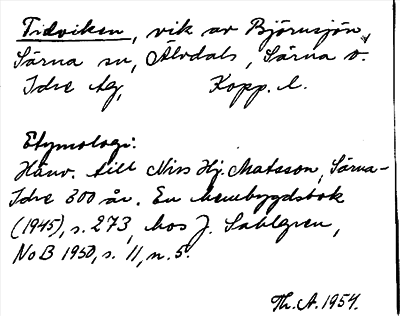 Tidviken, vik av Björnsjön,
Särna sn, Älvdals, Särna o.
Idre tlg, Kopp. l.
Etymologi:
Hänv. till Niss Hj. Matsson, Särna-
Idre 300 år. En hembygdsbok
(1945), s. 273, hos J. Sahlgren,
NoB 1950, s. 11, n. 5.
Th. A. 1954.